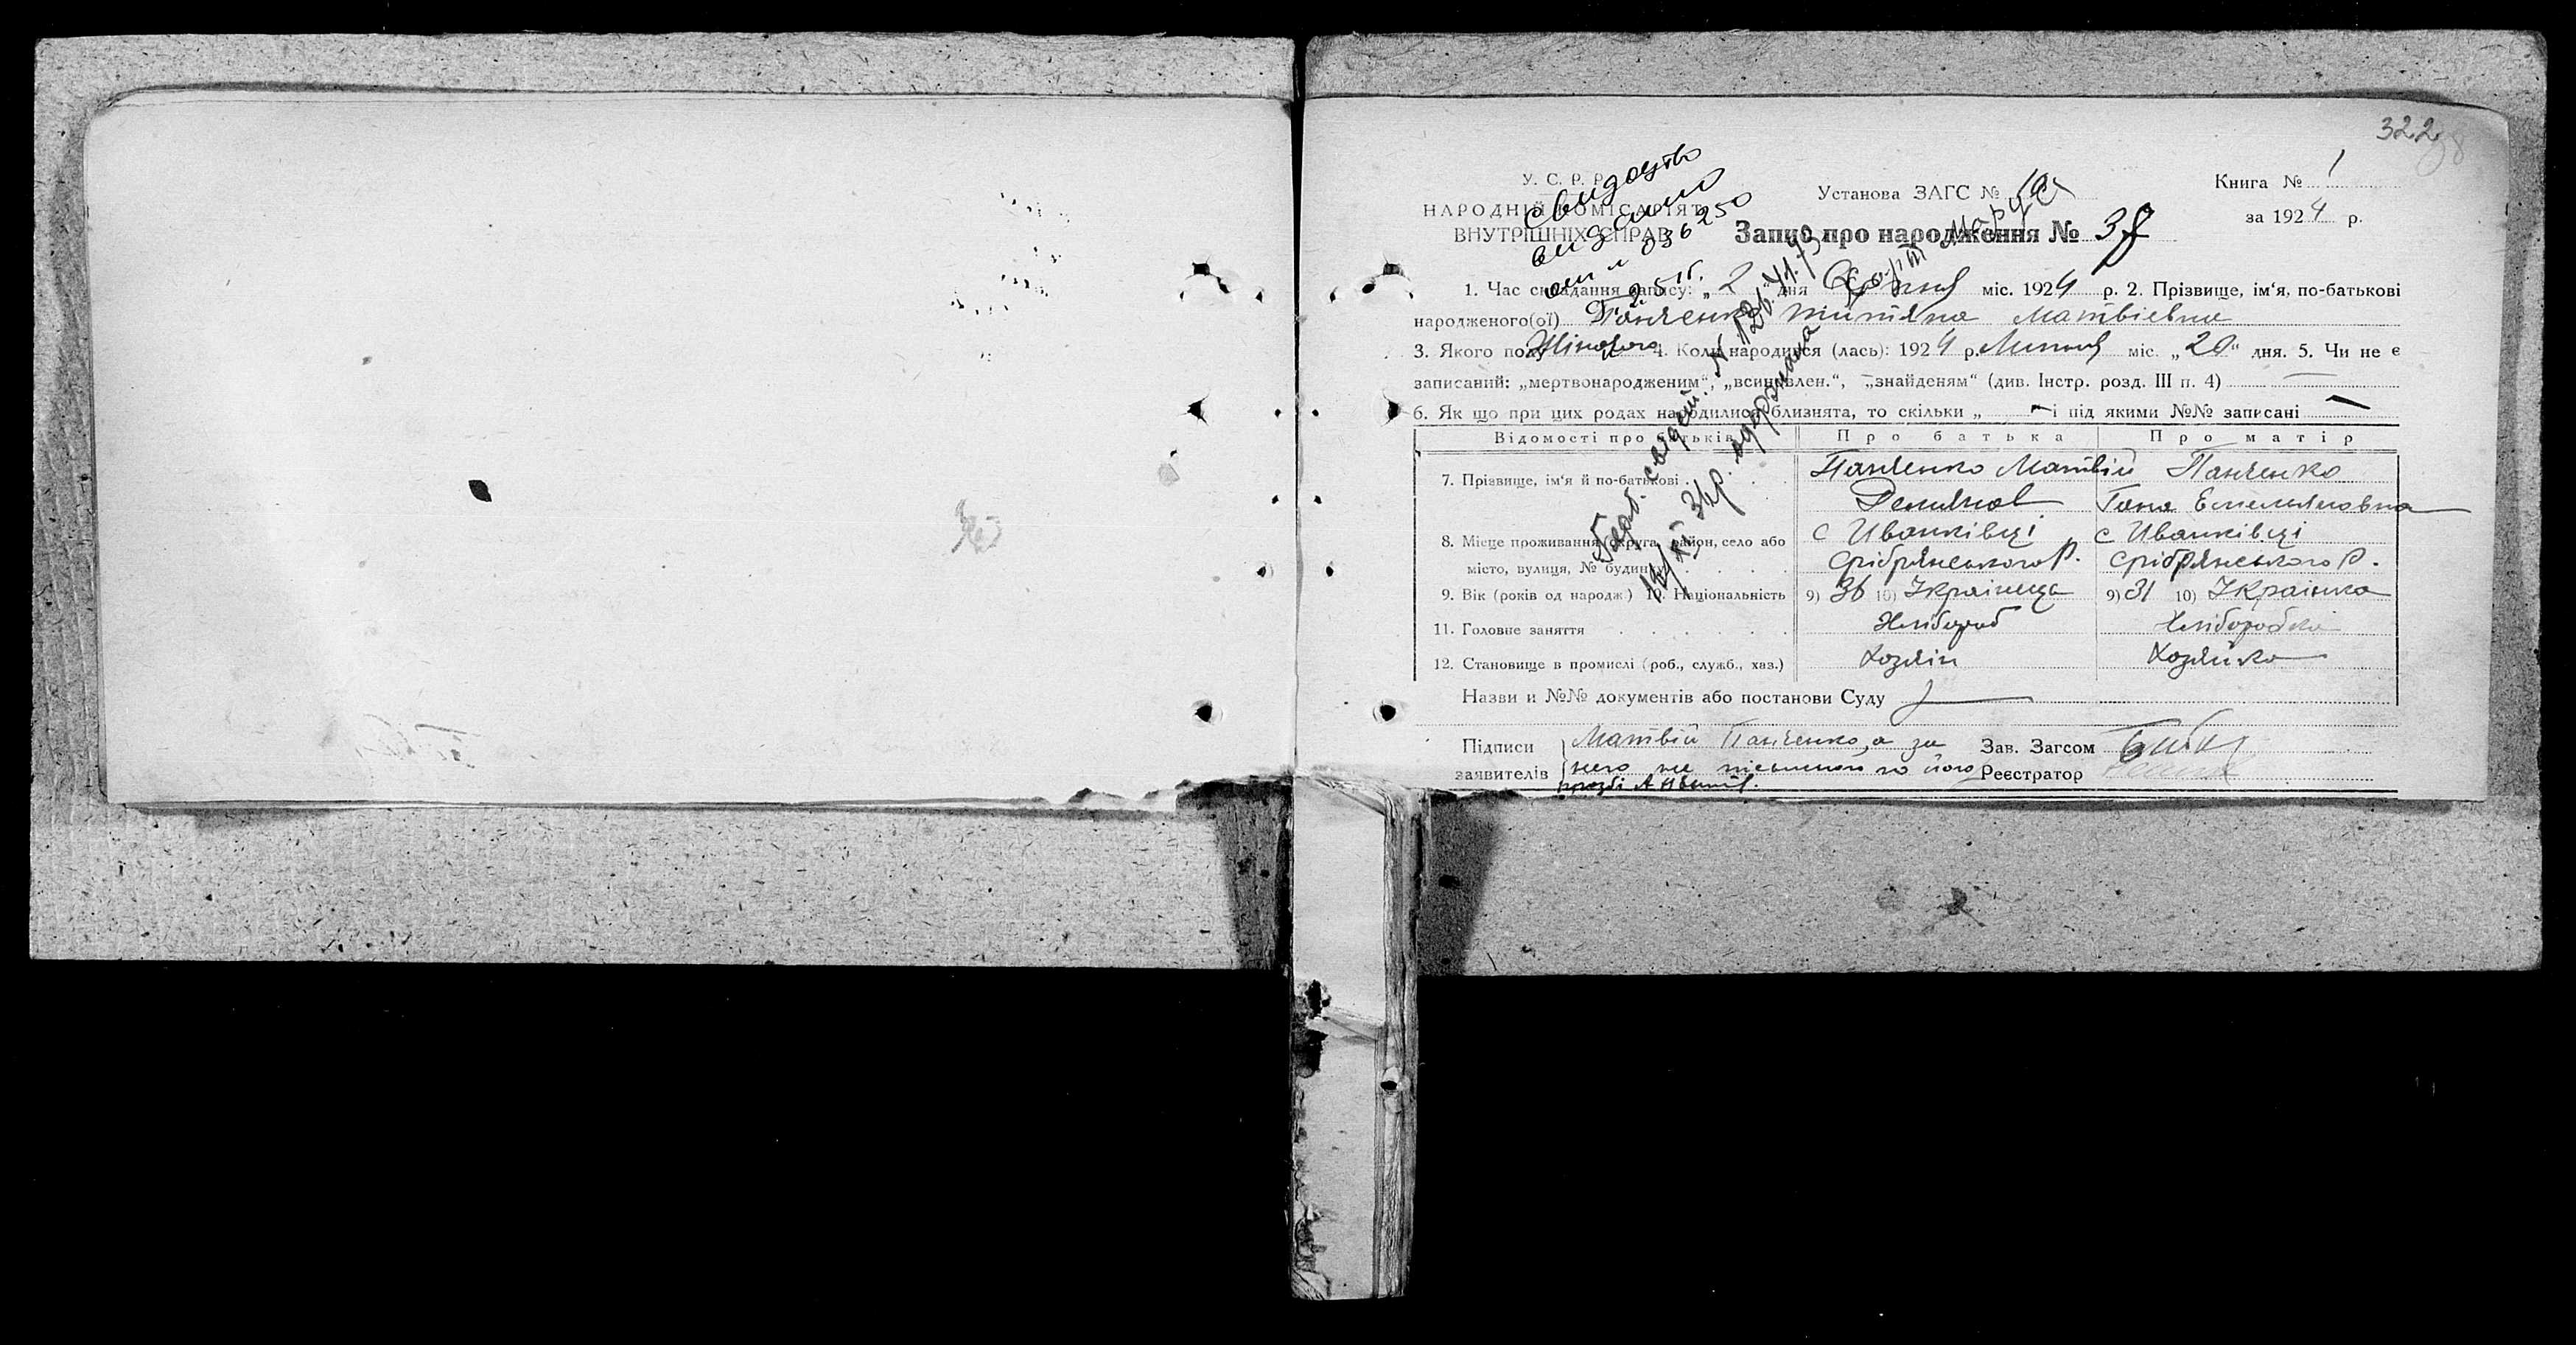 322
У. С. Р. Р.
НАРОДНІЙ КОМІСАРІЯТ
ВНУТРІШНІХ СПРАВ
свидоцтво
видано
036250
Установа ЗАГС №
Книга № 1
за 1924 р.
Запис про народження № 37
1. Час складання запису: „2“ дня Серпня міс. 1924 р. 2. Прізвище, ім‘я, по-батькові
народженого(ої) Панченко Титяна Матвіевна
3. Якого полу Жіночого 4. Коли народився (лась): 1924 р. Липня міс. „20“ дня. 5. Чи не є
записаний: „мертвонародженим“, „всиновлен.“, „знайденям“ (див. Інстр. розд. III п. 4) —
6. Як що при цих родах народилися близнята, то скільки „ — і під якими №№ записані —
Відомості про батьків Про батька Про матір
7. Прізвище, ім‘я й по-батькові Панченко Матвій Панченко
Демянов Гана Емельяновна
8. Місце проживання (округа, район, село або с Иванківці с Иванківці
місто, вулиця, № будин. Срібрянського Р. Срібрянського Р.
9. Вік (років од народж.) 10. Національність 9) 36 10) Україньца 9) 31 10) Українка
11. Головне заняття Хлібороб Хліборобка
12. Становище в промислі (роб., служб., хаз.) Хозяін Хозяйка
Назви и №№ документів або постанови Суду
Підписи Матвій Панченко, а за Зав. Загсом
заявителів него не письменого по його Реєстратор
прозбі